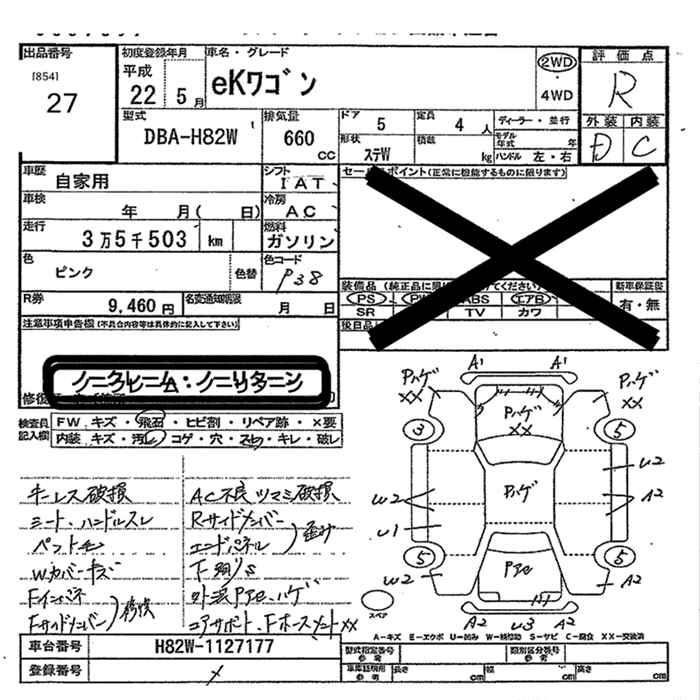 出品番号
[854]
27
初度登録年月
平成
22 5月
車名・グレード
eKワゴン
2WD
4WD
評価点
R
外装 内装
D C
型式
DBA-H82W
排気量
660
CC
ドア
5
定員
4 人
ディーラー・並行
形状
ステW
積載
kg
モデル年式 年
ハンドル 左・右
車歴
自家用
シフト
IAT
セールスポイント(正常に機能するものに限ります)
車検
年 月( 日)
冷房
AC
走行
3万5千503 km
燃料
ガソリン
色
ピンク
色替
色コード
P38
R券
9,460 円
名変通知期限
月 日
PS
ABS エアB
SR TV カワ
新車保証書
有・無
注意事項申告欄(不具合内容等は具体的に記入して下さい)
ノークレーム:ノーリターン
検査員記入欄
FW キズ・飛石・ヒビ割・リペア跡・×要
内装 キズ・汚れ・コゲ・穴・スレ・キレ・破レ
キーレス破損
シート、ハンドルスレ
Wカバーキズ
Fインパネ
Fサイドメンバー
修復
AC不良 ツマミ破損
Rサイドメンバー
エンドパネル
歪み
下廻りS
外装Pアセ、ハゲ
コアサポート、Fホースメント××
A1 A1
Pハゲ
××
Pハゲ
××
Pハゲ
××
3 5
U2
U2 A2
Pハゲ
U1
5 5
U2 A2
Pアセ
A2 U3 A2
スペア
A-キズ E-エクボ U-凹み W-補修跡 S-サビ C-腐食 XX-交換済
車台番号
H82W-1127177
登録番号
型式指定番号
参考
類別区分番号
参考
車庫証明用
参考
長さ cm
幅 cm
高さ cm